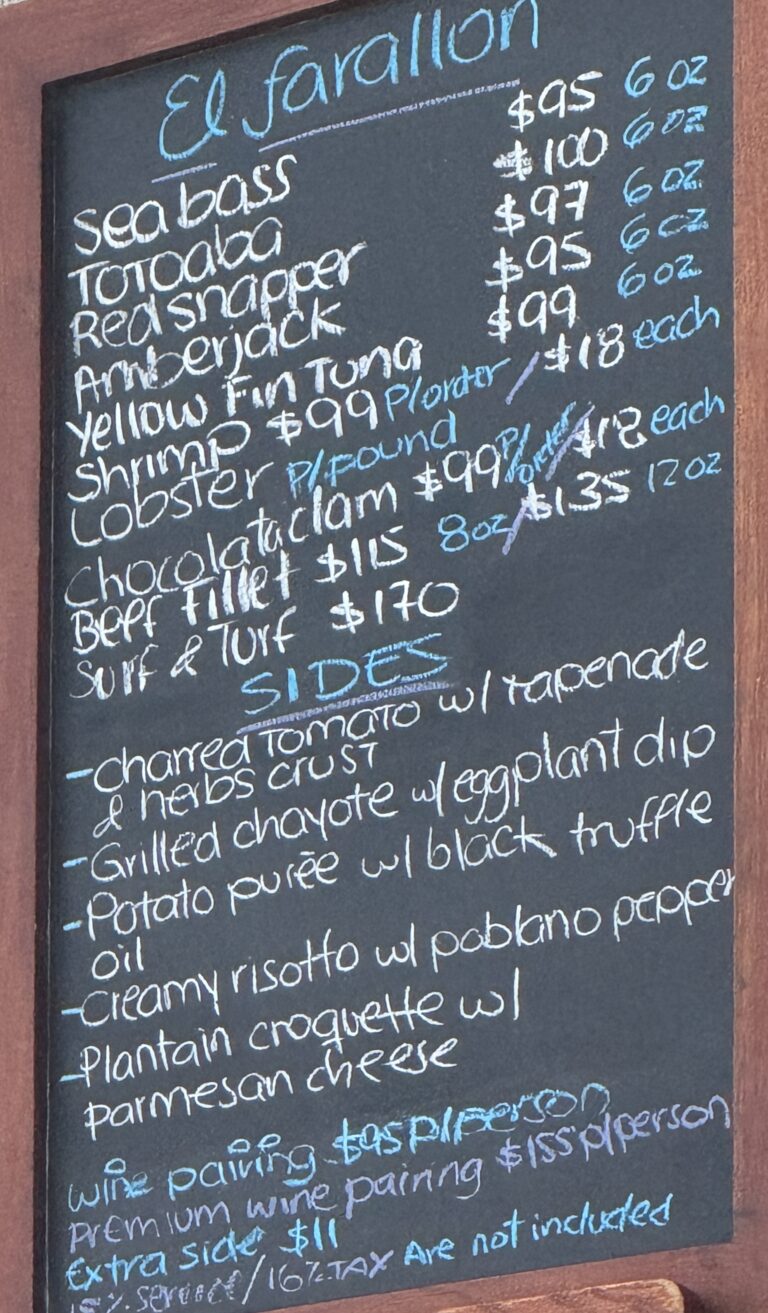 El farallon
Sea bass $95 6 oz
Totoaba $100 6 oz
Red snapper $97 6 oz
Amberjack $95 6 oz
Yellow Fin Tuna $99 6 oz
Shrimp $99 P/order / $18 each
Lobster P/Pound
Chocolata clam $99 P/order / $18 each
Beef fillet $115 8oz / $135 12 oz
Surf & Turf $170
SIDES
-Charred Tomato w/ Tapenade
& herbs crust
-Grilled chayote w/ eggplant dip
-Potato purēe w/ black truffle
oil
-Creamy risotto w/ poblano pepper
-Plantain croquette w/
parmesan cheese
Wine pairing $95 p/person
Premium wine pairing $155 p/person
Extra side $11
15% service/16% TAX Are not included